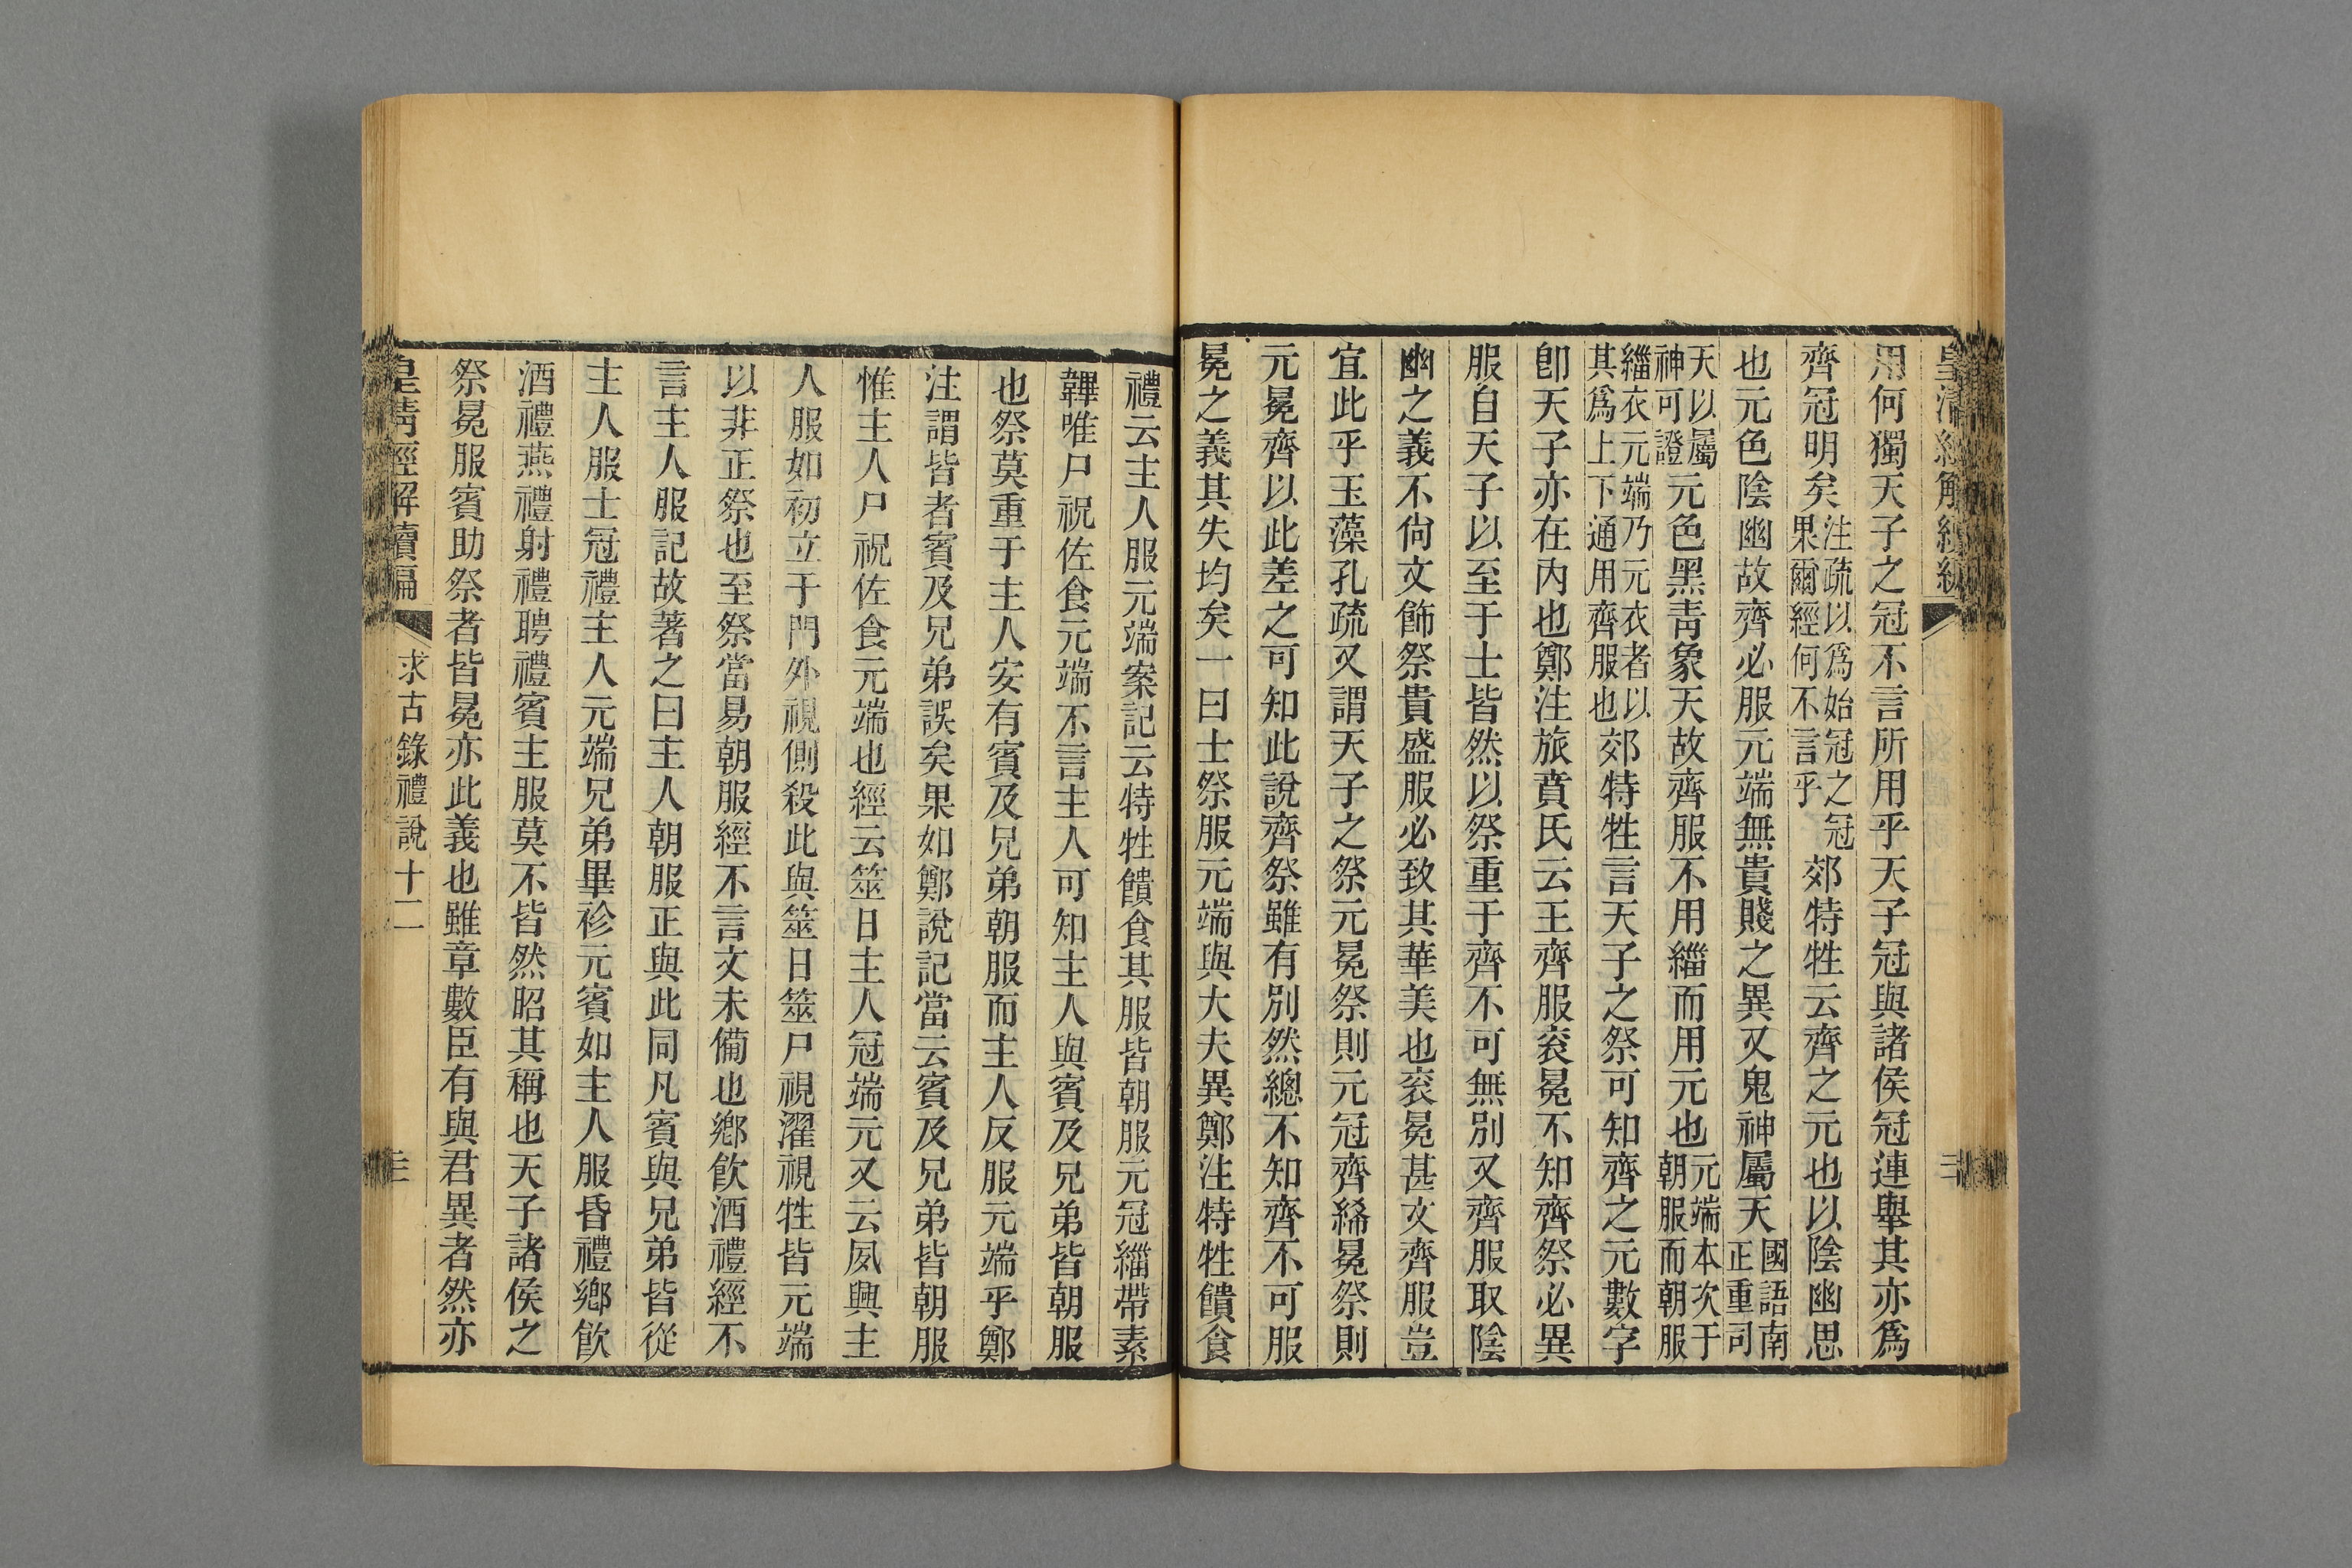 皇清經解續編
三
用何獨天子之冠不言所用乎天子冠與諸侯冠連舉其亦爲
齊冠明矣注疏以爲始冠之冠果爾經何不言乎郊特牲云齊之元也以陰幽思
也元色陰幽故齊必服元端無貴賤之異又鬼神屬天國語南正重司
天以屬神可證元色黑靑象天故齊服不用緇而用元也元端本次于朝服而朝服
緇衣元端乃元衣者以其爲上下通用齊服也郊特牲言天子之祭可知齊之元數字
卽天子亦在內也鄭注旅賁氏云王齊服袞冕不知齊祭必異
服自天子以至于士皆然以祭重于齊不可無別又齊服取陰
幽之義不尙文飾祭貴盛服必致其華美也袞冕甚文齊服豈
宜此乎玉藻孔疏又謂天子之祭元冕祭則元冠齊絺冕祭則
元冕齊以此差之可知此說齊祭雖有別然總不知齊不可服
冕之義其失均矣一曰士祭服元端與大夫異鄭注特牲饋食
禮云主人服元端案記云特牲饋食其服皆朝服元冠緇帶素
韠唯尸祝佐食元端不言主人可知主人與賓及兄弟皆朝服
也祭莫重于主人安有賓及兄弟朝服而主人反服元端乎鄭
注謂皆者賓及兄弟誤矣果如鄭說記當云賓及兄弟皆朝服
惟主人尸祝佐食元端也經云筮日主人冠端元又云夙興主
人服如初立于門外視側殺此與筮日筮尸視濯視牲皆元端
以非正祭也至祭當易朝服經不言文未備也鄉飮酒禮經不
言主人服記故著之曰主人朝服正與此同凡賓與兄弟皆從
主人服士冠禮主人元端兄弟畢袗元賓如主人服昏禮鄉飮
酒禮燕禮射禮聘禮賓主服莫不皆然昭其稱也天子諸侯之
祭冕服賓助祭者皆冕亦此義也雖章數臣有與君異者然亦
皇清經解續編
求古錄禮說十二